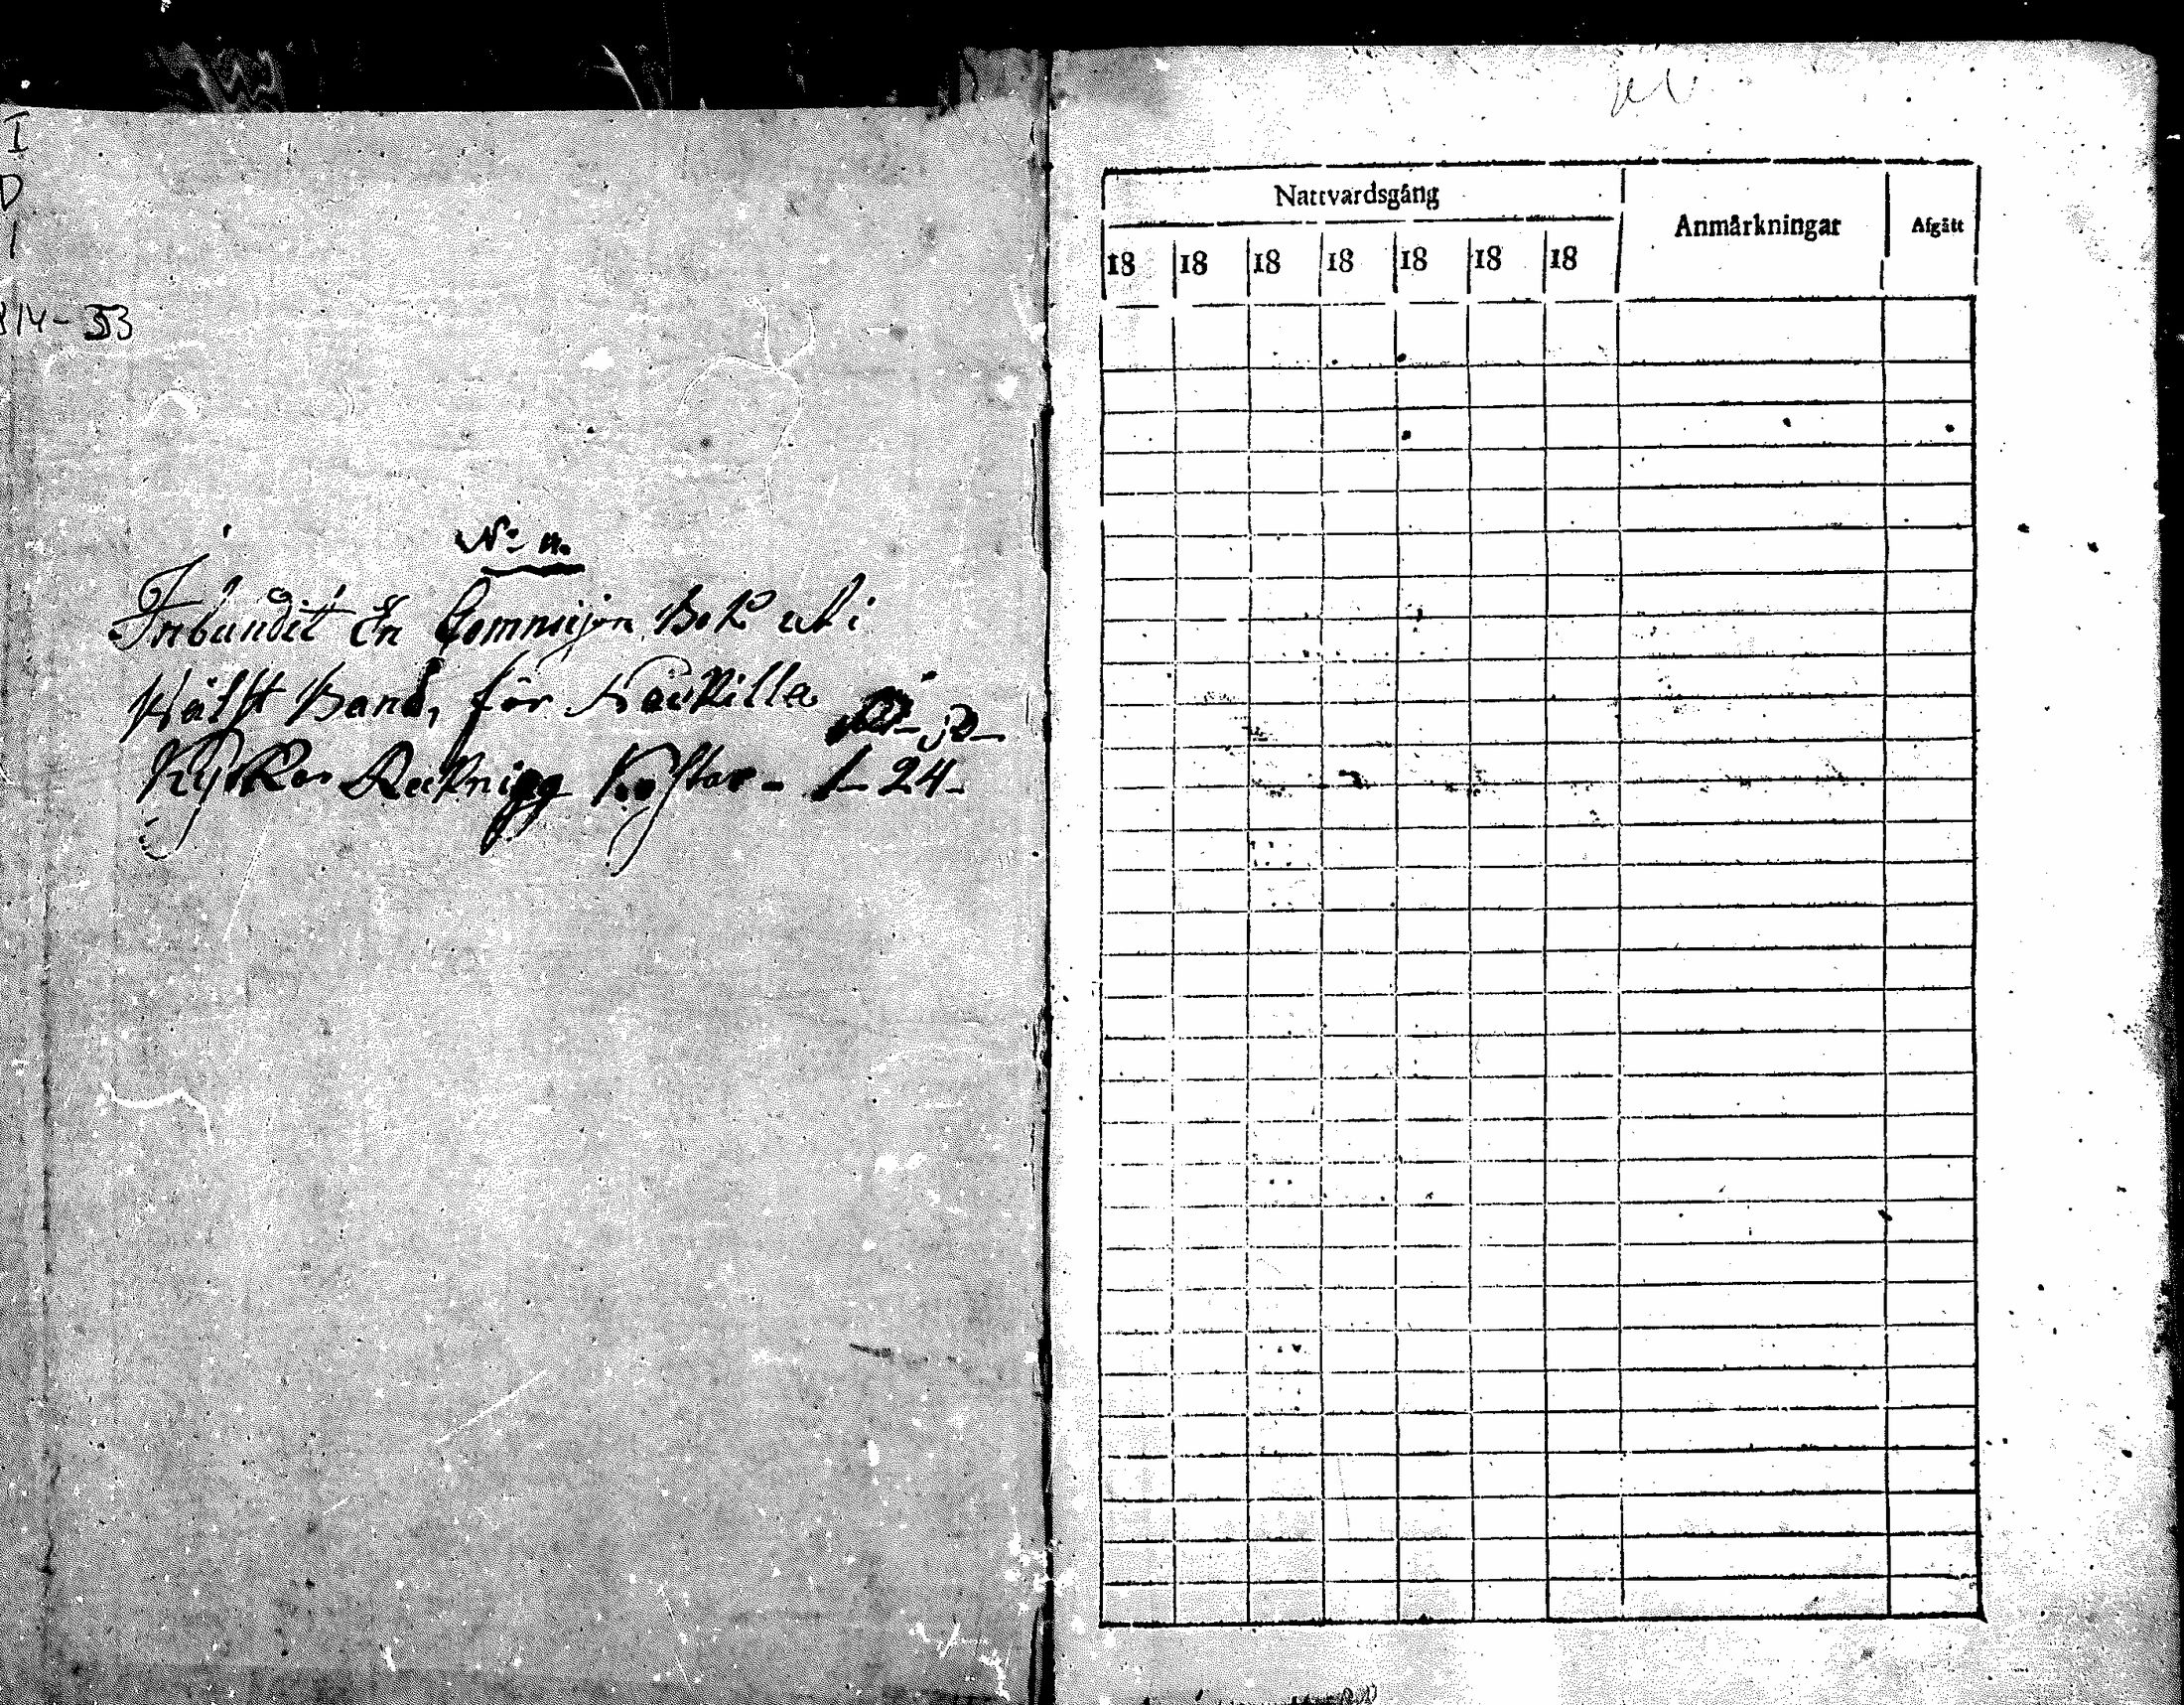 I
D
1
814-33
No 11.
Inbundit En Commujon Bok uti
Wälskt Band, för
Kyrkas Räkning Kostar - 1-24-
Nattvardsgång
Anmärkningar
Afgått
18 18 18 18 18 18 18